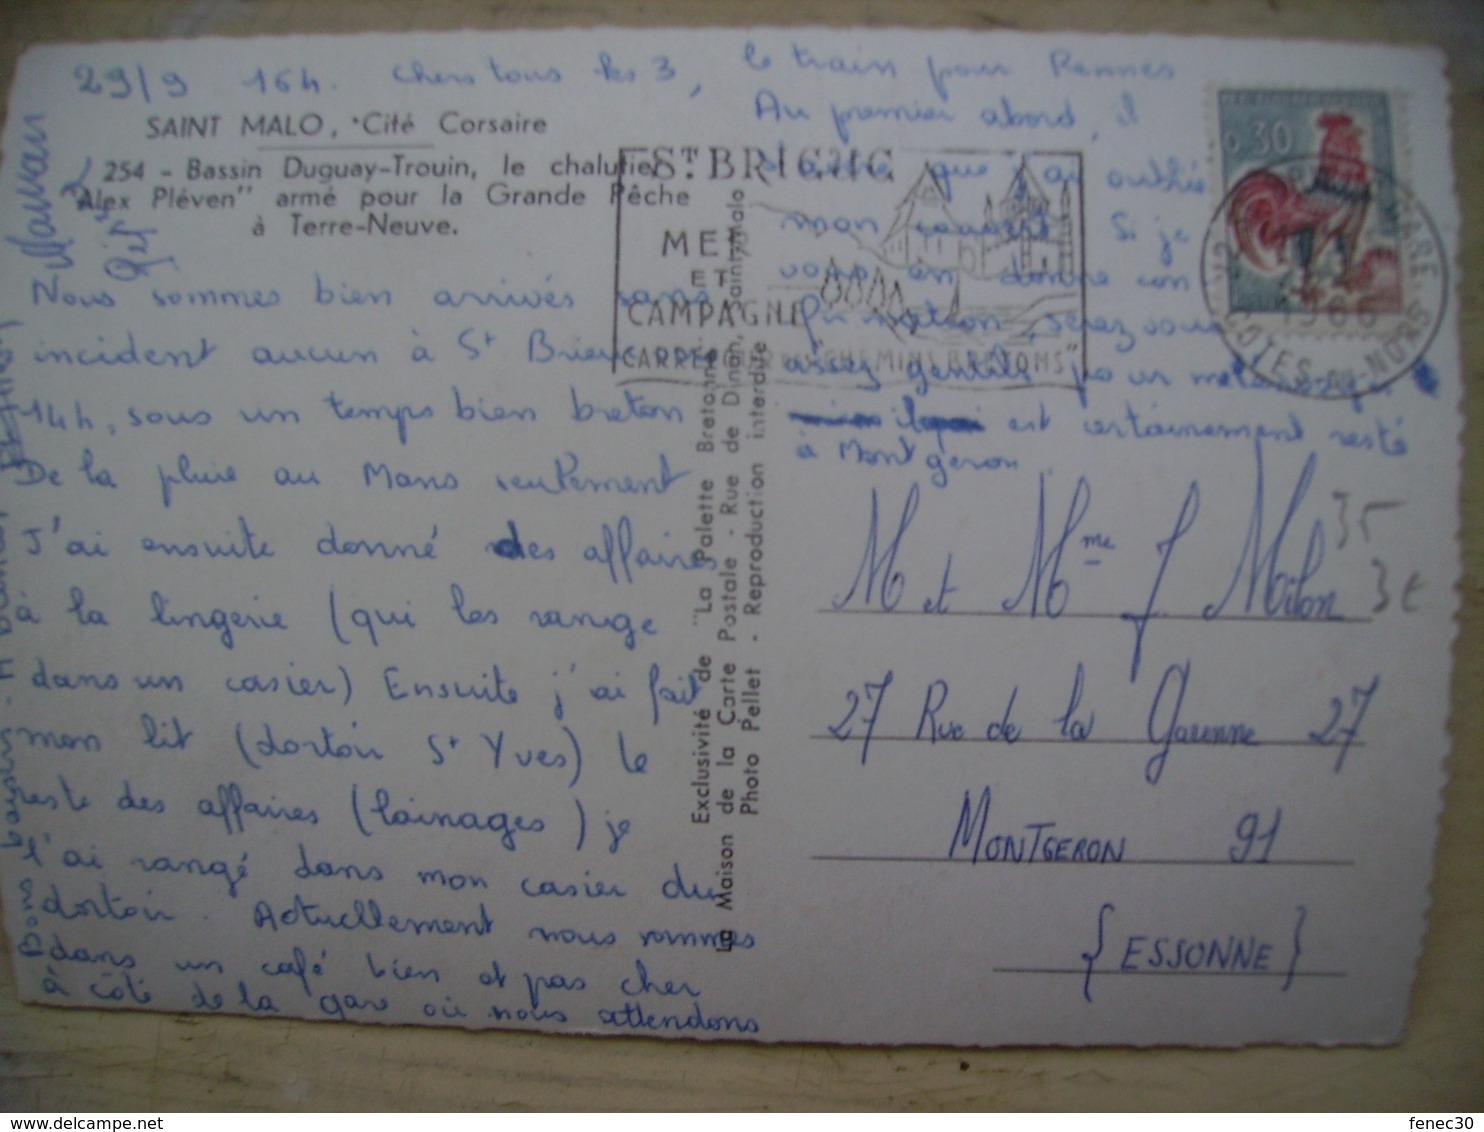 29/9 16h. Chers tous les 3,
SAINT MALO, Cité Corsaire
254 - Bassin Duguay-Trouin, le chalutier
"Alex Pléven" armé pour la Grande Pêche
à Terre-Neuve.
Nous sommes bien arrivés sans
incident aucun à St Brieuc
14h, sous un temps bien breton
De la pluie au Mans seulement
J'ai ensuite donné des affaires
à la lingerie (qui les range
dans un casier) Ensuite j'ai fait
mon lit (dortoir St Yves) le
reste des affaires (lainages) je
l'ai rangé dans mon casier du
dortoir. Actuellement nous sommes
dans un café bien et pas cher
à côté de la gare où nous attendons
le train pour Rennes
Au premier abord, il
que j'ai oublié
mon Si je
vous en donne con
firmation, serez vous
assez gentils pour
est certainement resté
à Montgeron
Bons baisers
Maman
Exclusivité de "La Palette Bretonne"
La Maison de la Carte Postale - Rue de Dinan, Saint-Malo
Photo Pellet - Reproduction interdite
ST BRIEUC
MER
ET
CAMPAGNE
CARREFOUR DES "CHEMINS BRETONS"
0,30
1966
COTES-DU-NORD
M et Mme J Milon
35
3€
27 Rue de la Garenne 27
MONTGERON 91
{ESSONNE}
fenec30